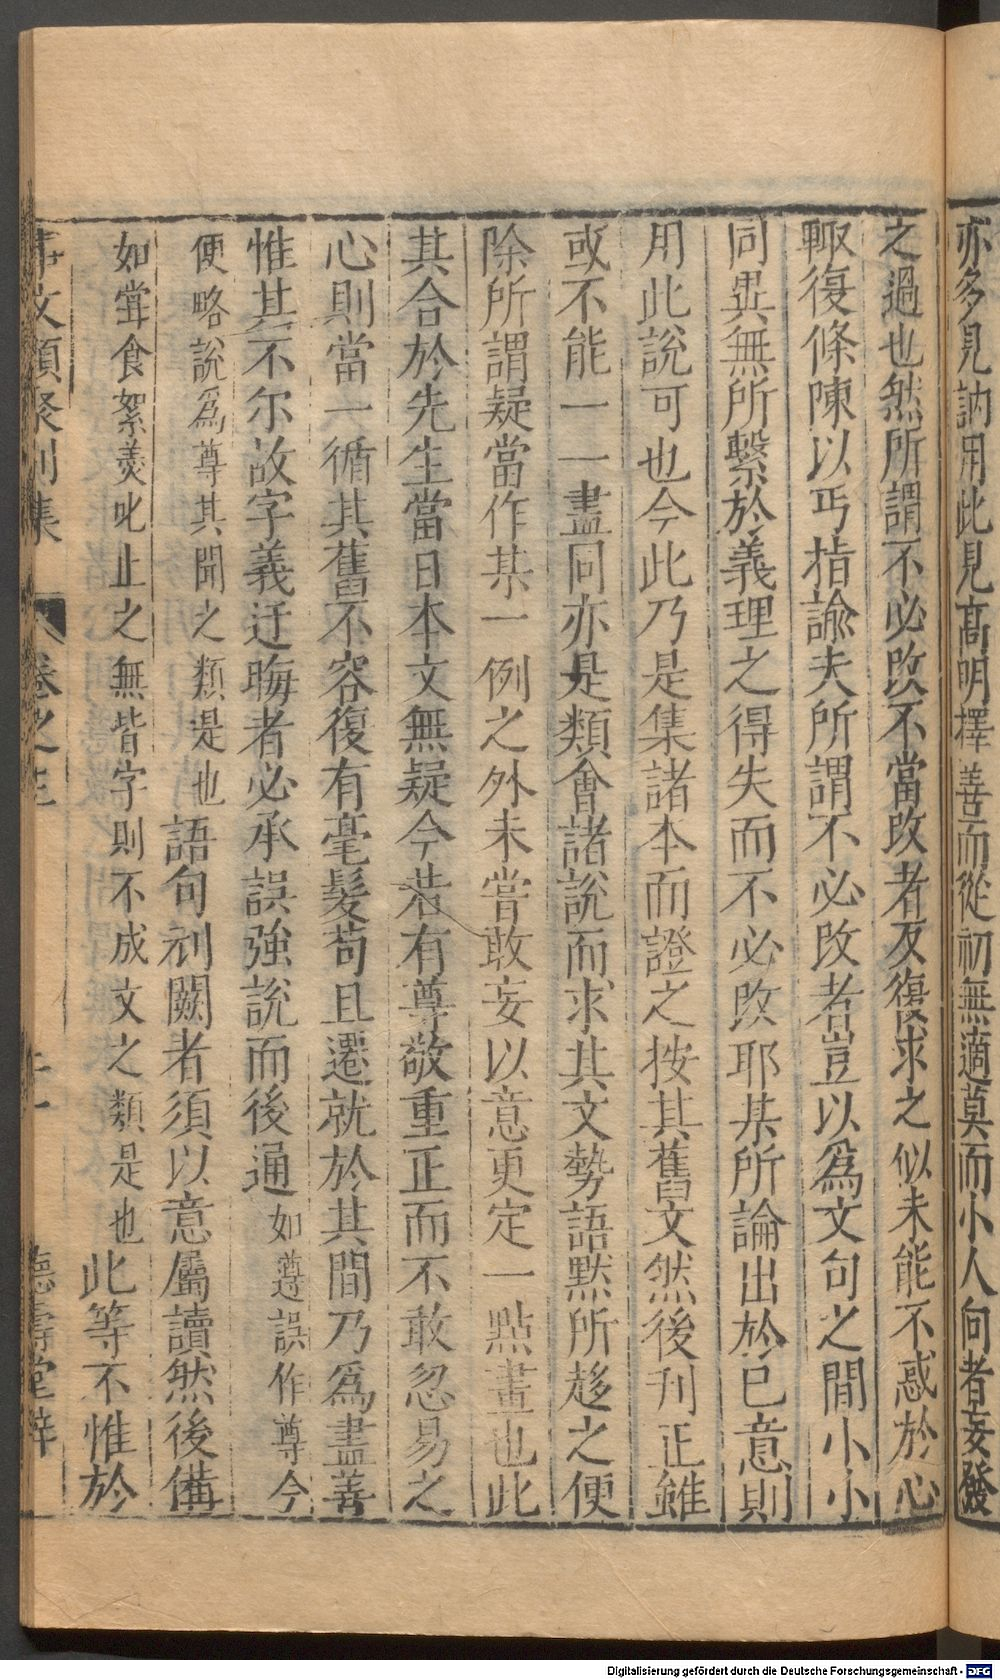 亦多見訥用此見高明擇善而從初無適莫而小人向者妄發
之過也然所謂不必改不當改者反復求之似未能不惑於心
輙復條陳以丐指諭夫所謂不必改者豈以為文句之間小小
同異無所繫於義理之得失而不必改耶某所論出於已意則
用此說可也今此乃是集諸本而證之按其舊文然後刊正雖
或不能一一盡同亦是類會諸說而求其文勢語黙所趍之便
除所謂疑當作某一例之外未嘗敢妄以意更定一點畫也此
其合於先生當日本文無疑今若有尊敬重正而不敢忽易之
心則當一循其舊不容復有毫髮苟且遷就於其間乃爲盡善
惟其不尔故字義迂晦者必承誤強說而後通如遵誤作尊今
便略說爲尊其聞之類是也語句刓闕者須以意屬讀然後備
如嘗食絮羮叱止之無皆字則不成文之類是也此等不惟於
事文類聚別集 卷之三 十一 德壽堂梓
Digitalisierung gefördert durch die Deutsche Forschungsgemeinschaft - DFG